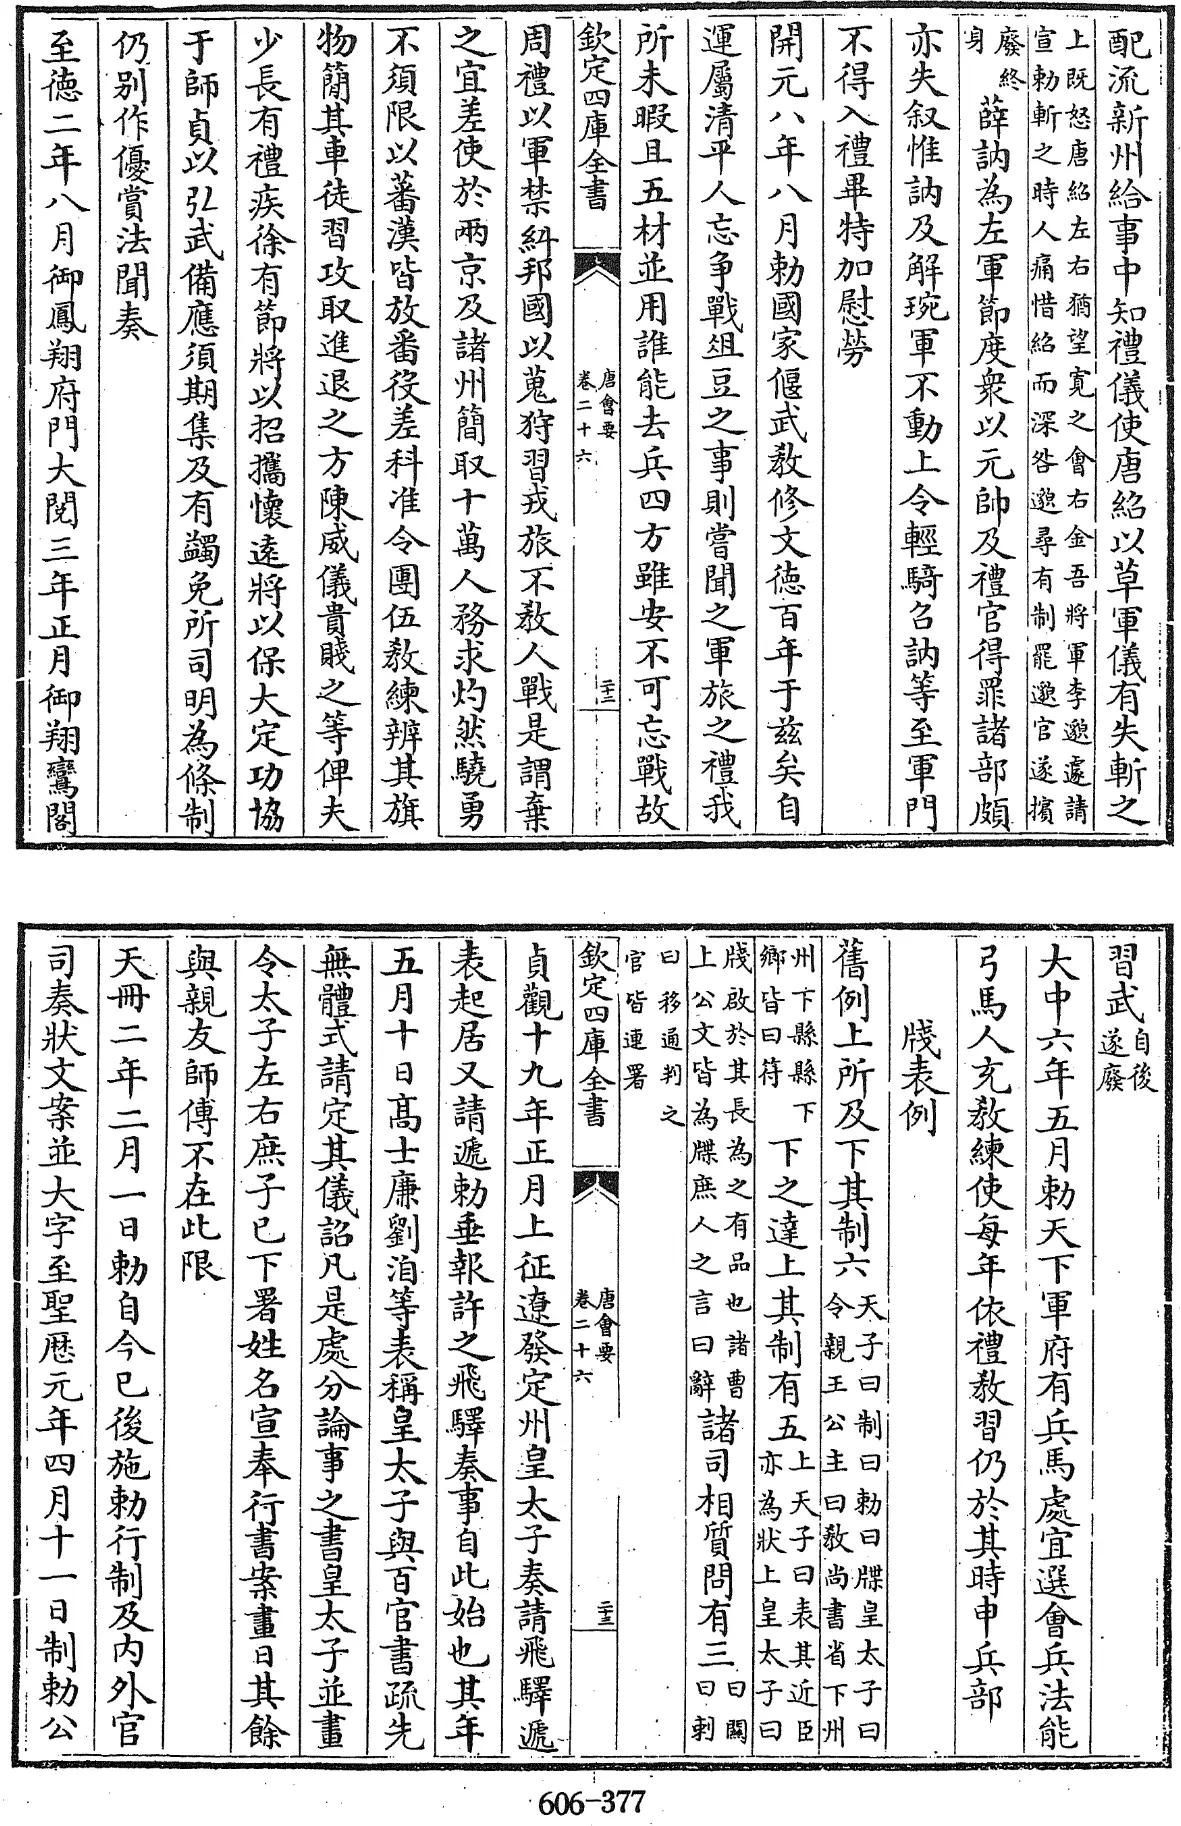 配流新州給事中知禮儀使唐紹以草軍儀有失斬之
上既怒唐紹左右猶望寛之會右金吾將軍李邈遽請
宣勅斬之時人痛惜紹而深咎邈尋有制罷邈官遂擯
廢終
身
薛訥為左軍節度衆以元帥及禮官得罪諸部頗
亦失叙惟訥及解琬軍不動上令輕騎召訥等至軍門
不得入禮畢特加慰勞
開元八年八月勅國家偃武敎修文德百年于兹矣自
運屬清平人忘争戰俎豆之事則嘗聞之軍旅之禮我
所未暇且五材並用誰能去兵四方雖安不可忘戰故
欽定四庫全書
唐會要
卷二十六
二十二
周禮以軍禁糾邦國以蒐狩習戎旅不敎人戰是謂棄
之宜差使於兩京及諸州簡取十萬人務求灼然驍勇
不須限以蕃漢皆放番役差科准令團伍敎練辨其旗
物簡其車徒習攻取進退之方陳威儀貴賤之等俾夫
少長有禮疾徐有節將以招攜懷遠將以保大定功協
于師貞以弘武備應須期集及有蠲免所司明為條制
仍别作優賞法聞奏
至德二年八月御鳳翔府門大閱三年正月御翔鸞閣
習武
自後
遂廢
大中六年五月勅天下軍府有兵馬處宜選會兵法能
弓馬人充敎練使每年依禮敎習仍於其時申兵部
牋表例
舊例上所及下其制六
天子曰制曰勅曰牒皇太子曰
令親王公主曰敎尚書省下州
州下縣縣下
鄉皆曰符
下之達上其制有五
上天子曰表其近臣
亦為狀上皇太子曰
牋啟於其長為之有品也諸曹
上公文皆為牒庶人之言曰辭
諸司相質問有三
曰關
曰刺
曰移通判之
官皆連署
欽定四庫全書
唐會要
卷二十六
二十三
貞觀十九年正月上征遼發定州皇太子奏請飛驛遞
表起居又請遞勅垂報許之飛驛奏事自此始也其年
五月十日髙士廉劉洎等表稱皇太子與百官書疏先
無體式請定其儀詔凡是處分論事之書皇太子並畫
令太子左右庶子已下署姓名宣奉行書案畫日其餘
與親友師傅不在此限
天冊二年二月一日勅自今已後施勅行制及内外官
司奏狀文案並大字至聖歴元年四月十一日制勅公
606-377